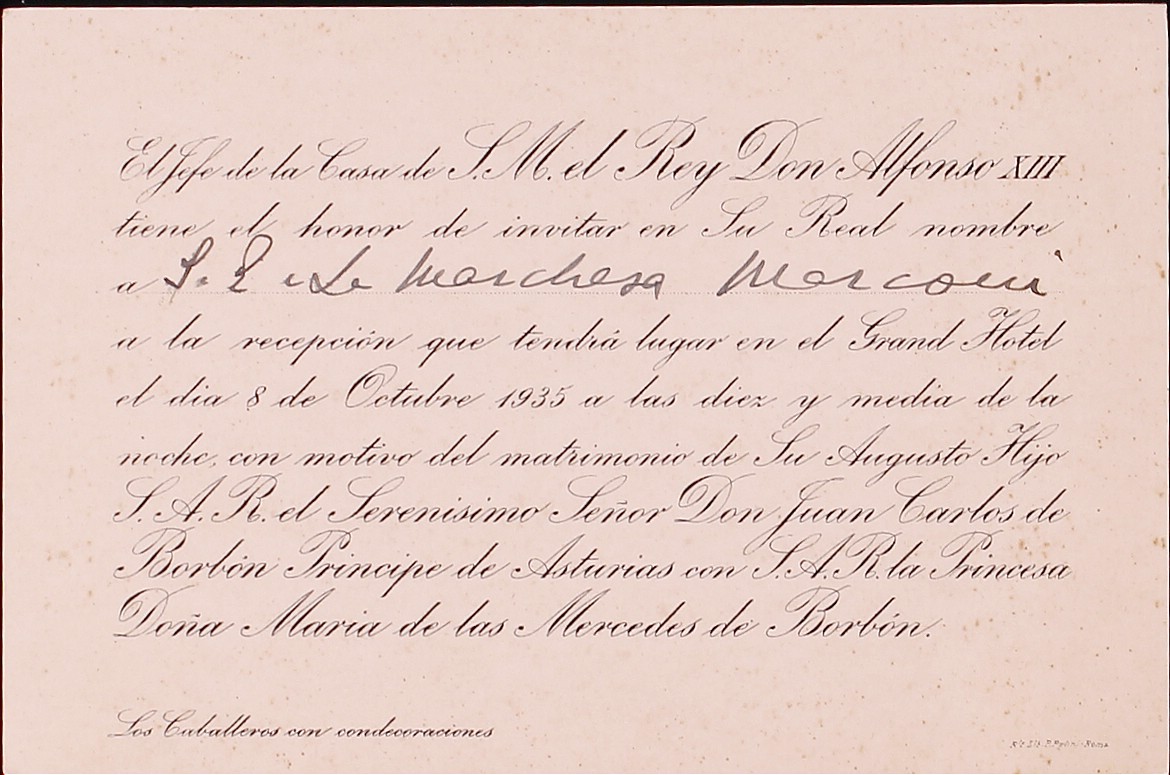 El Jefe de la Casa de S. M. el Rey Don Alfonso XIII
tiene el honor de invitar en Su Real nombre
a S. E. e La Marchesa Marconi
a la recepción que tendrá lugar en el Grand Hotel
el dia 8 de Octubre 1935 a las diez y media de la
noche, con motivo del matrimonio de Su Augusto Hijo
S. A. R. el Serenisimo Señor Don Juan Carlos de
Borbón Principe de Asturias con S. A. R. la Princesa
Doña Maria de las Mercedes de Borbón.
Los Caballeros con condecoraciones
Roma